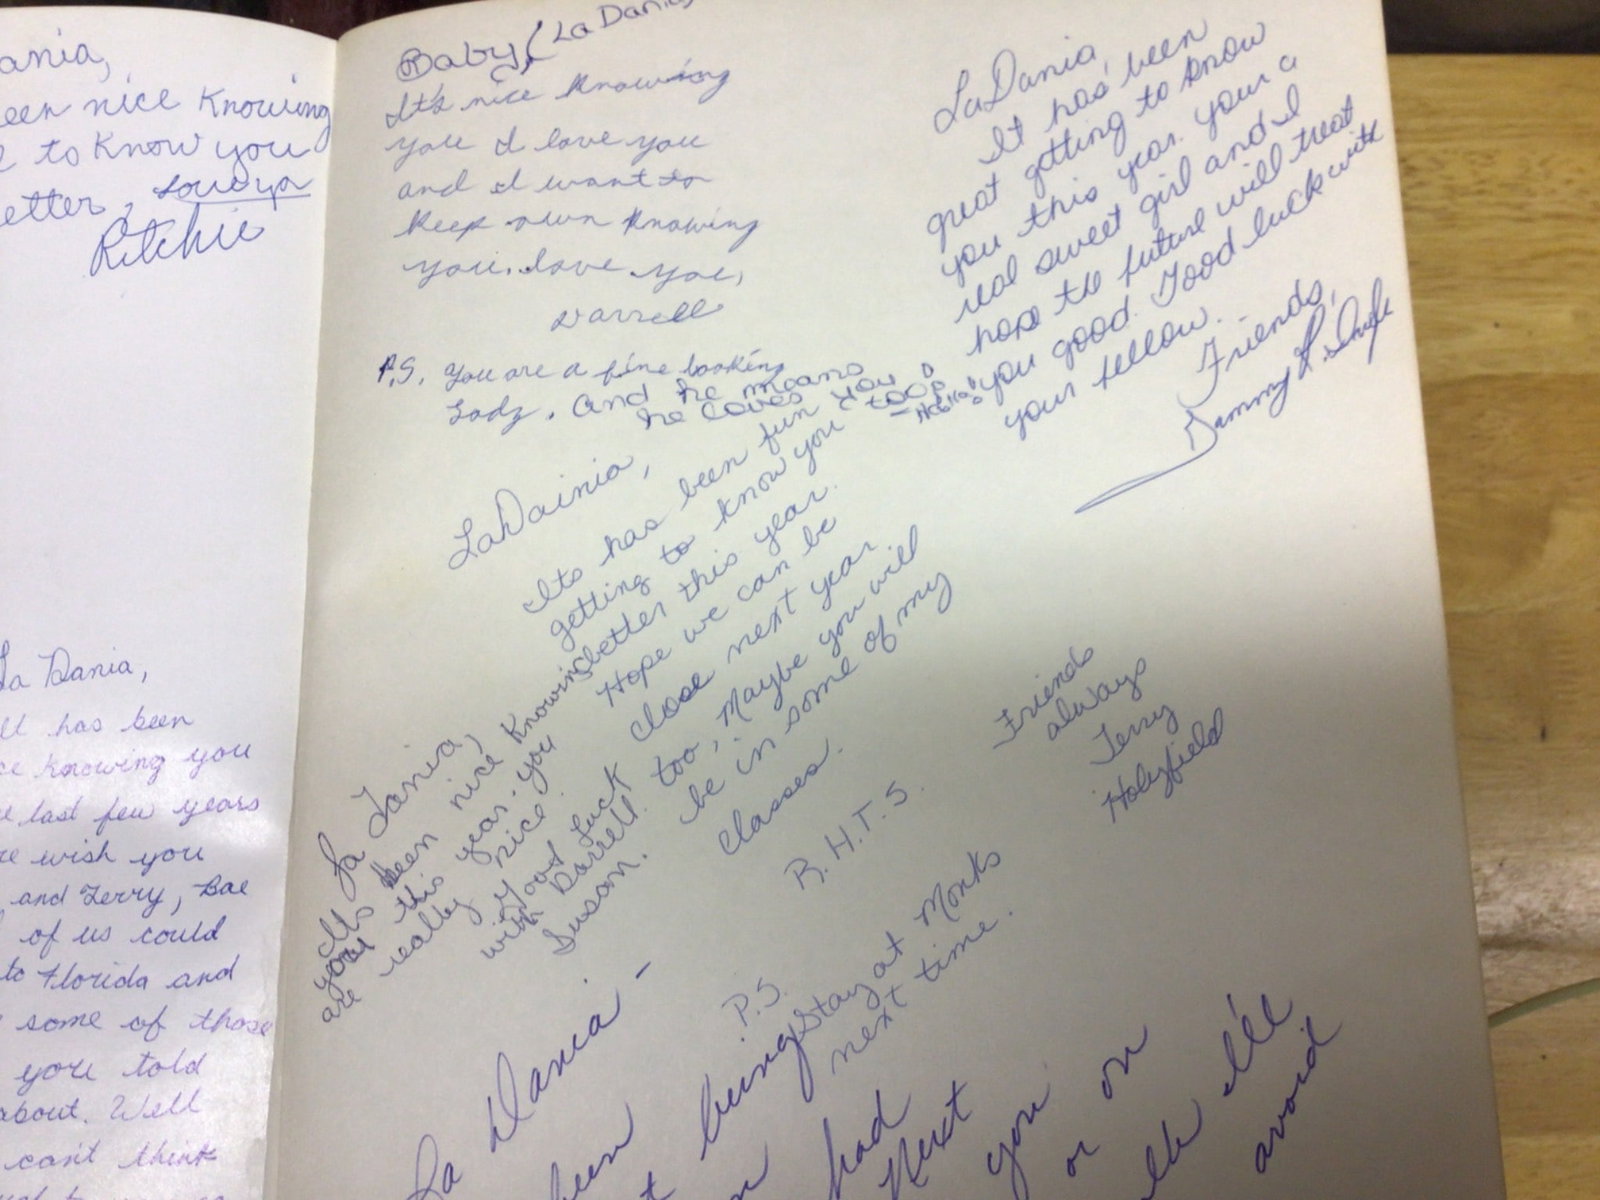 ania,
een nice Knowing
to Know you
etter,
Ritchie
La Dania,
It has been
ce knowing you
e last few years
re wish you
and Terry, Bae
of us could
to Florida and
some of those
you told
about. Well
can't think
Baby (La Dania)
It's nice knowing
you I love you
and I want to
keep own knowing
you. love you,
Darrell
P.S. You are a fine looking
Lady. And he means
he loves you too
LaDania,
It has been
great getting to know
you this year. your a
real sweet girl and I
hope the future will treat
you good. Good luck with
your fellow.
Friends,
LaDainia,
Its has been fun
getting to know you
better this year.
Hope we can be
close next year
too, Maybe you will
be in some of my
classes.
Friends
always
Terry
Holyfield
R.H.T.S.
P.S.
Stay at Monks
next time.
La Dania,
Its been nice knowing
you this year. you
are really nice.
Good Luck
with Darrell.
Susan.
La Dania -
been
being
had
Next
you on
or
I'll
avoid